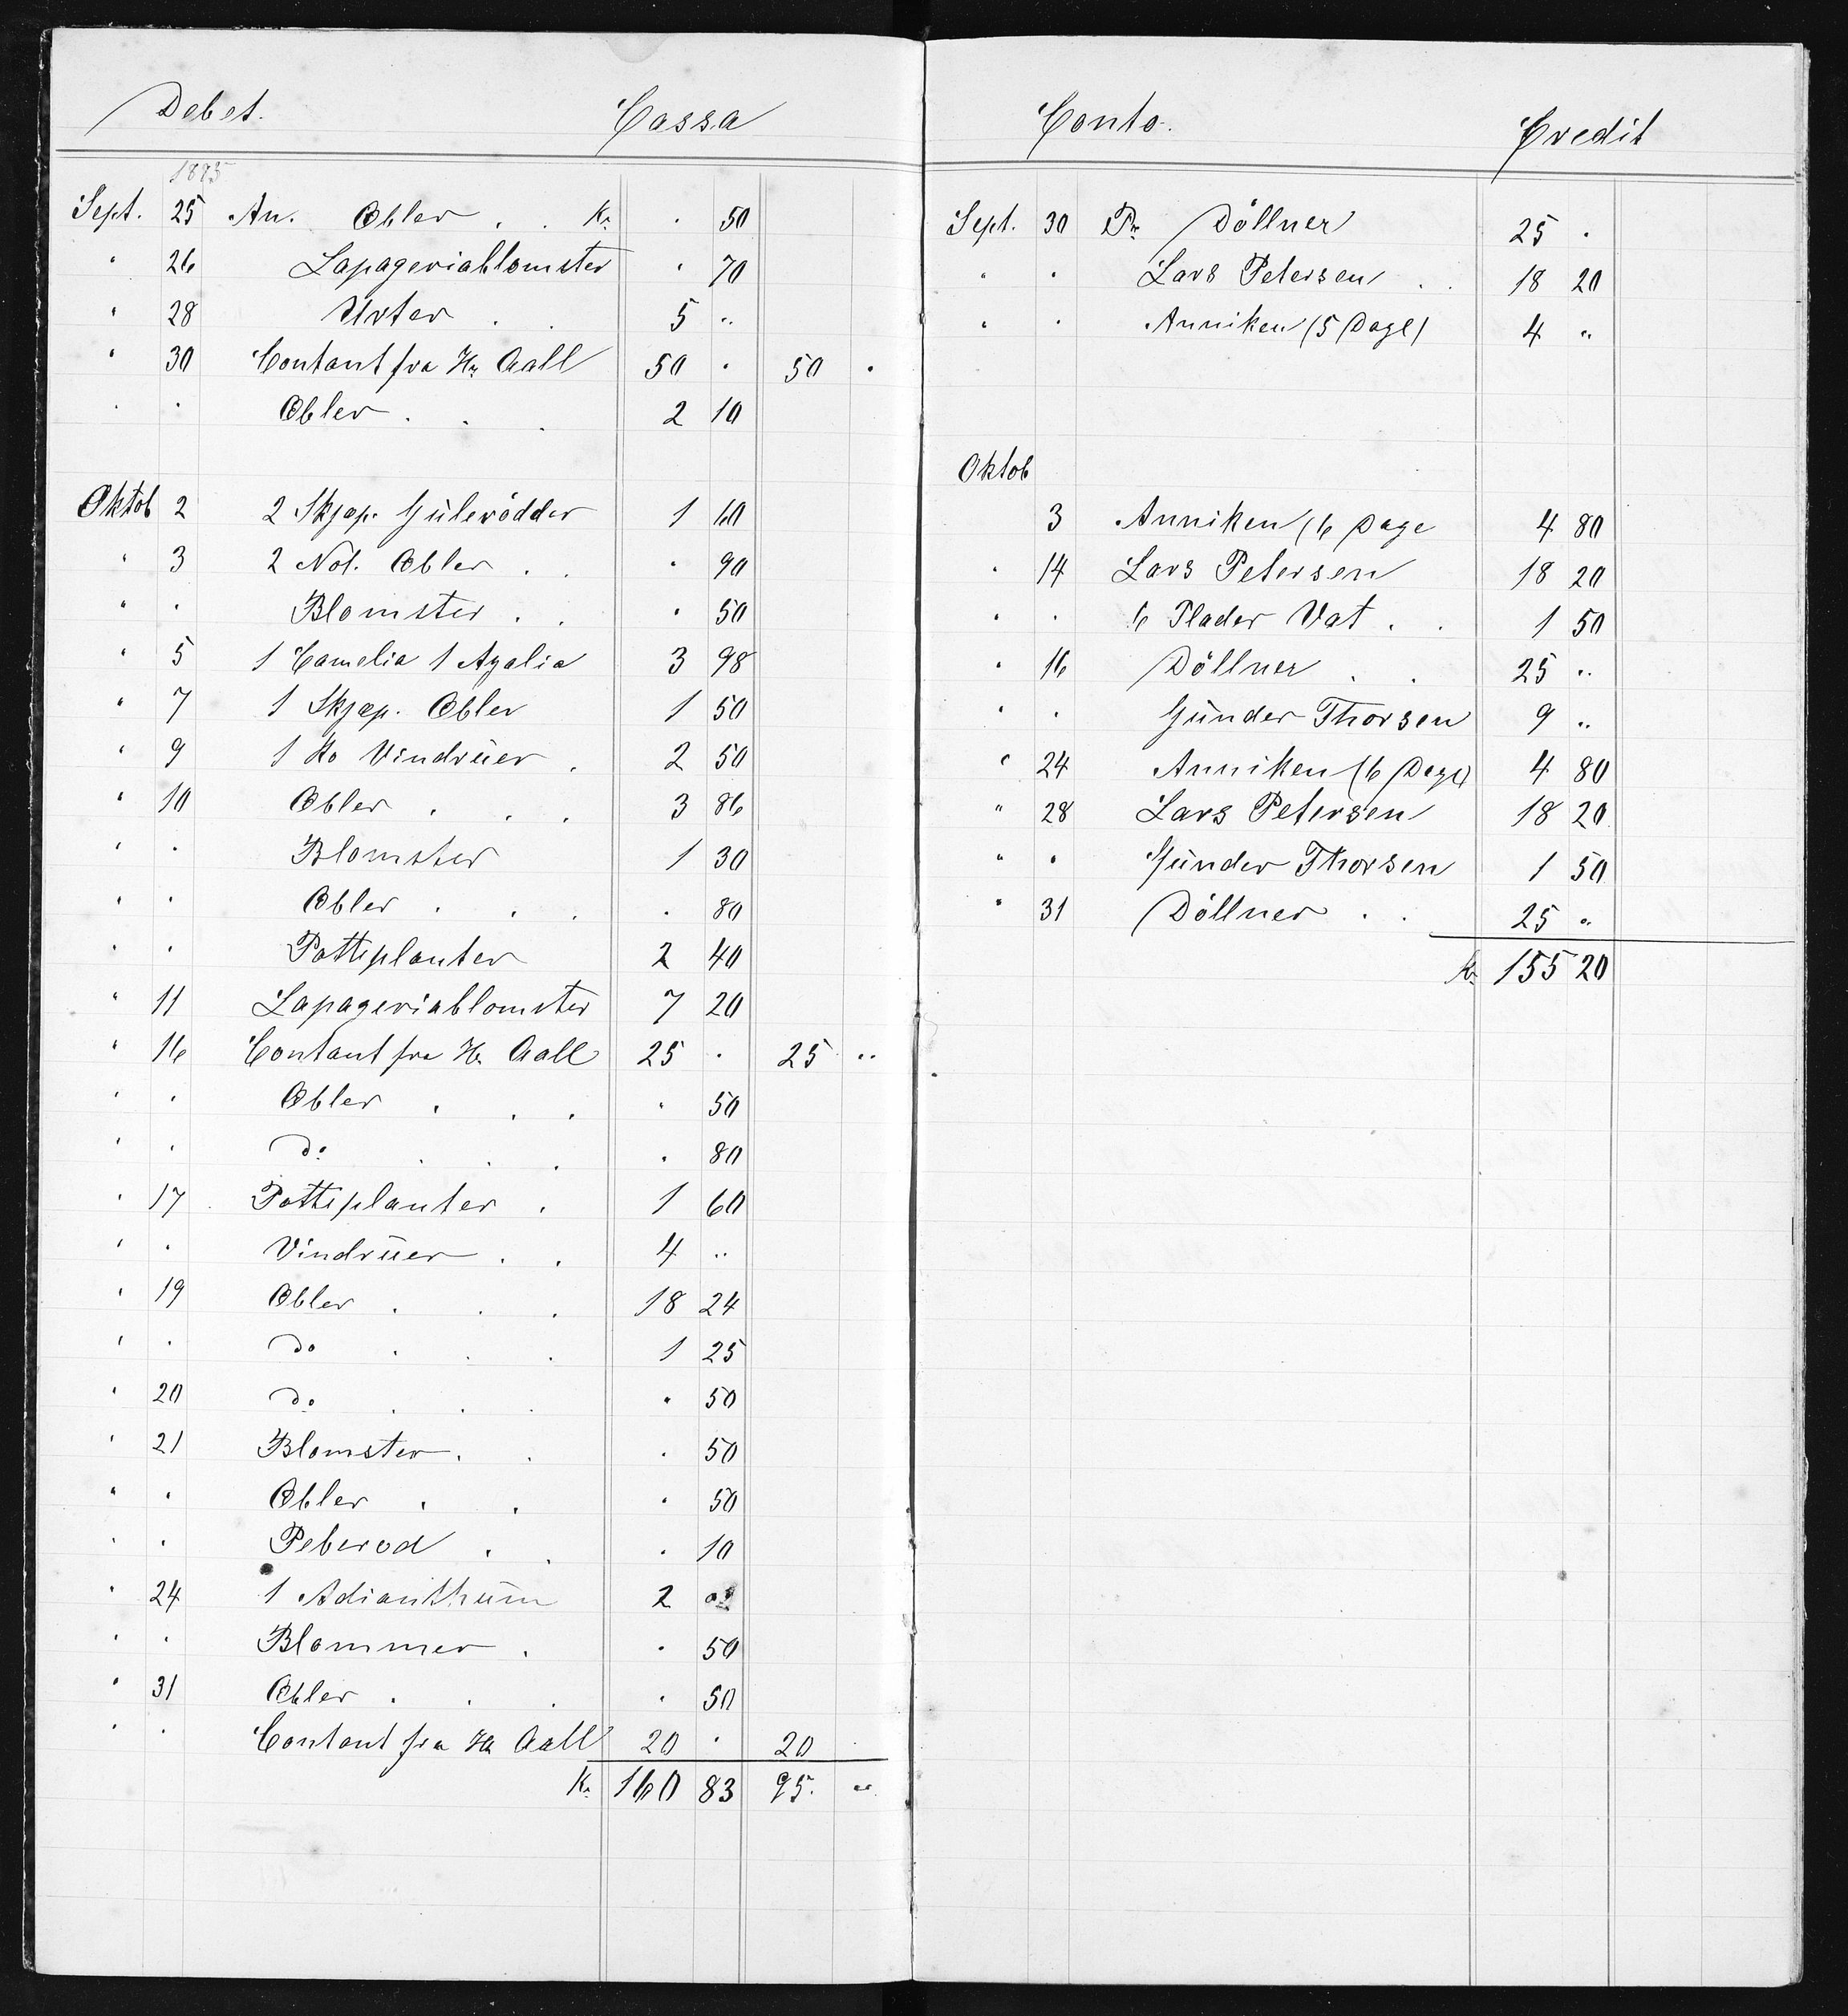 Debet. Cassa
1895
Sept. 25 An. Æbler . . Kr. . 50
" 26 Lapageriablomster . 70
" 28 Urter . . 5 "
" 30 Contant fra Hr Aall 50 . 50 .
" " Æbler . . . 2 10
Oktob 2 2 Skjæp. Gülerödder 1 60
" 3 2 Not. Æbler . . . 90
" " Blomster . . . 50
" 5 1 Camelia 1 Azalia 3 98
" 7 1 Skjæp. Æbler 1 50
" 9 1 Ko Vindrüer . 2 50
" 10 Æbler . . . 3 86
" " Blomster 1 30
" " Æbler . . . . 80
" " Pottiplanter 2 40
" 11 Lapageriablomster 7 20
" 16 Contant fra Hr. Aall 25 . 25 "
" " Æbler . . . " 50
" " Do . . . . 80
" 17 Pottiplanter . 1 60
" " Vindrüer . . 4 "
" 19 Æbler . . . 18 24
" " Do . . . 1 25
" 20 Do . . . " 50
" 21 Blomster . . . 50
" " Æbler . . . 50
" " Peberod . . . 10
" 24 1 Adianthüm 2
" " Blommer . . 50
" 31 Æbler . . . . 50
" " Contant fra Hr Aall 20 . 20 .
Kr. 160 83 95. "
Conto. Credit
Sept. 30 Pr Döllner 25 .
" " Lars Petersen . . 18 20
" " Anniken (5 Dage) 4 "
Oktob
3 Anniken (6 Dage 4 80
" 14 Lars Petersen 18 20
" " 6 Plader Vat . . 1 50
" 16 Döllner . . 25 "
" " Günder Thorsen 9 "
" 24 Anniken (6 Dage) 4 80
" 28 Lars Petersen 18 20
" " Günder Thorsen 1 50
" 31 Döllner . . 25 "
Kr. 155 20